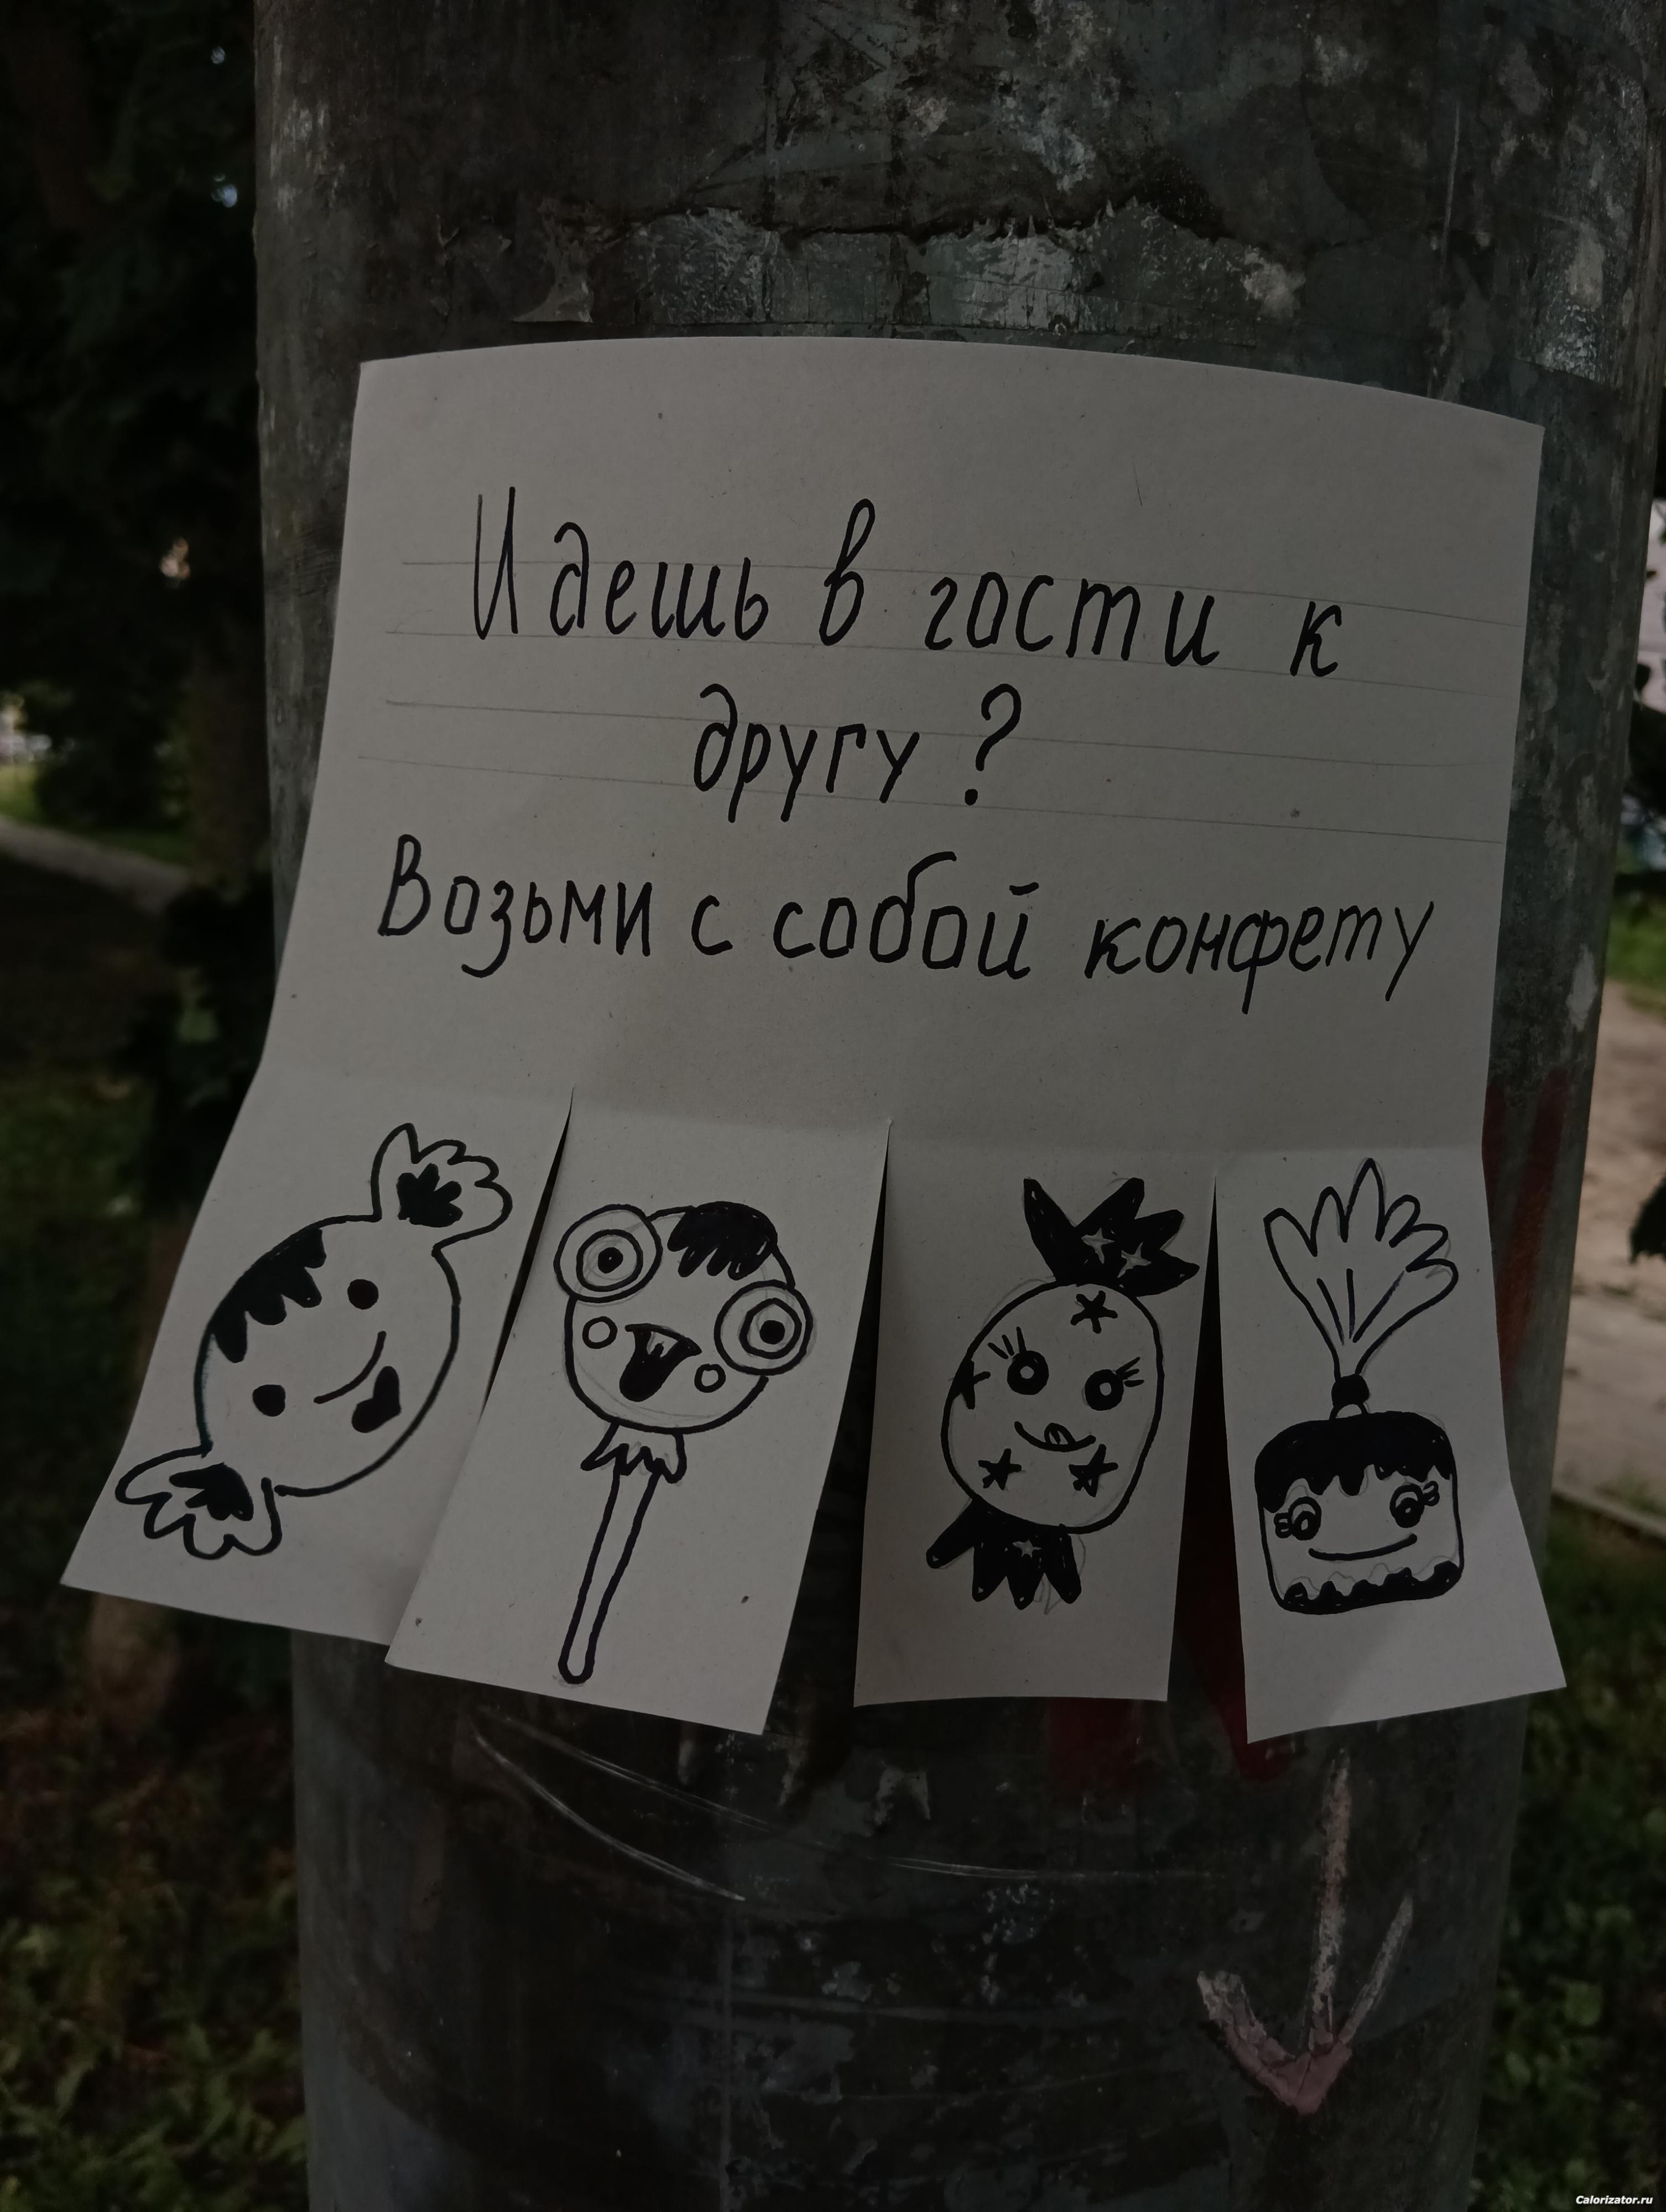 Идешь в гости к
другу?
Возьми с собой конфету
Calorizator.ru